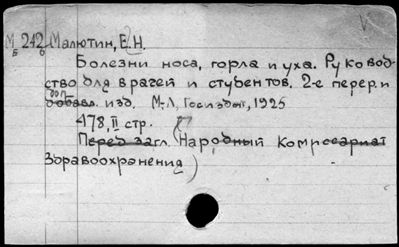 М 212 Малютин, Е.Н.
Б 0
Болезни носа, горла и уха. Руковод-
ство для врачей и студентов. 2-е перер. и
доп.
добавл. изд. М-Л, Госиздат, 1925
478, II стр. (
Перед загл. Народный Комиссариат
Здравоохранения)